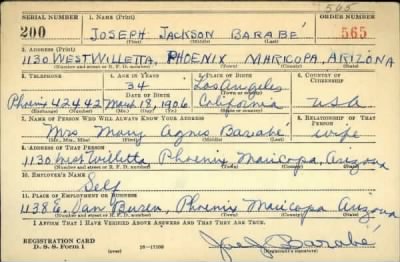 565
SERIAL NUMBER 1. NAME (Print) ORDER NUMBER
200 JOSEPH JACKSON BARABÉ 565
(First) (Middle) (Last)
2. ADDRESS (Print)
1130 WEST WILLETTA, PHOENIX MARICOPA, ARIZONA
(Number and street or R. F. D. number) (Town) (County) (State)
3. TELEPHONE 4. AGE IN YEARS 5. PLACE OF BIRTH 6. COUNTRY OF CITIZENSHIP
34 Los Angeles
DATE OF BIRTH (Town or county)
Phoenix 42442 March 18, 1906 California USA
(Exchange) (Number) (Mo.) (Day) (Yr.) (State or country)
7. NAME OF PERSON WHO WILL ALWAYS KNOW YOUR ADDRESS 8. RELATIONSHIP OF THAT PERSON
Mrs Mary Agnes Barabé wife
(Mr., Mrs., Miss) (First) (Middle) (Last)
9. ADDRESS OF THAT PERSON
1130 West Willetta Phoenix Maricopa, Arizona
(Number and street or R. F. D. number) (Town) (County) (State)
10. EMPLOYER'S NAME
Self
11. PLACE OF EMPLOYMENT OR BUSINESS
1138 E. Van Buren, Phoenix Maricopa Arizona
(Number and street or R. F. D. number) (Town) (County) (State)
I AFFIRM THAT I HAVE VERIFIED ABOVE ANSWERS AND THAT THEY ARE TRUE.
REGISTRATION CARD
D. S. S. Form 1 16-17105 Joe J Barabé
(Registrant's signature)